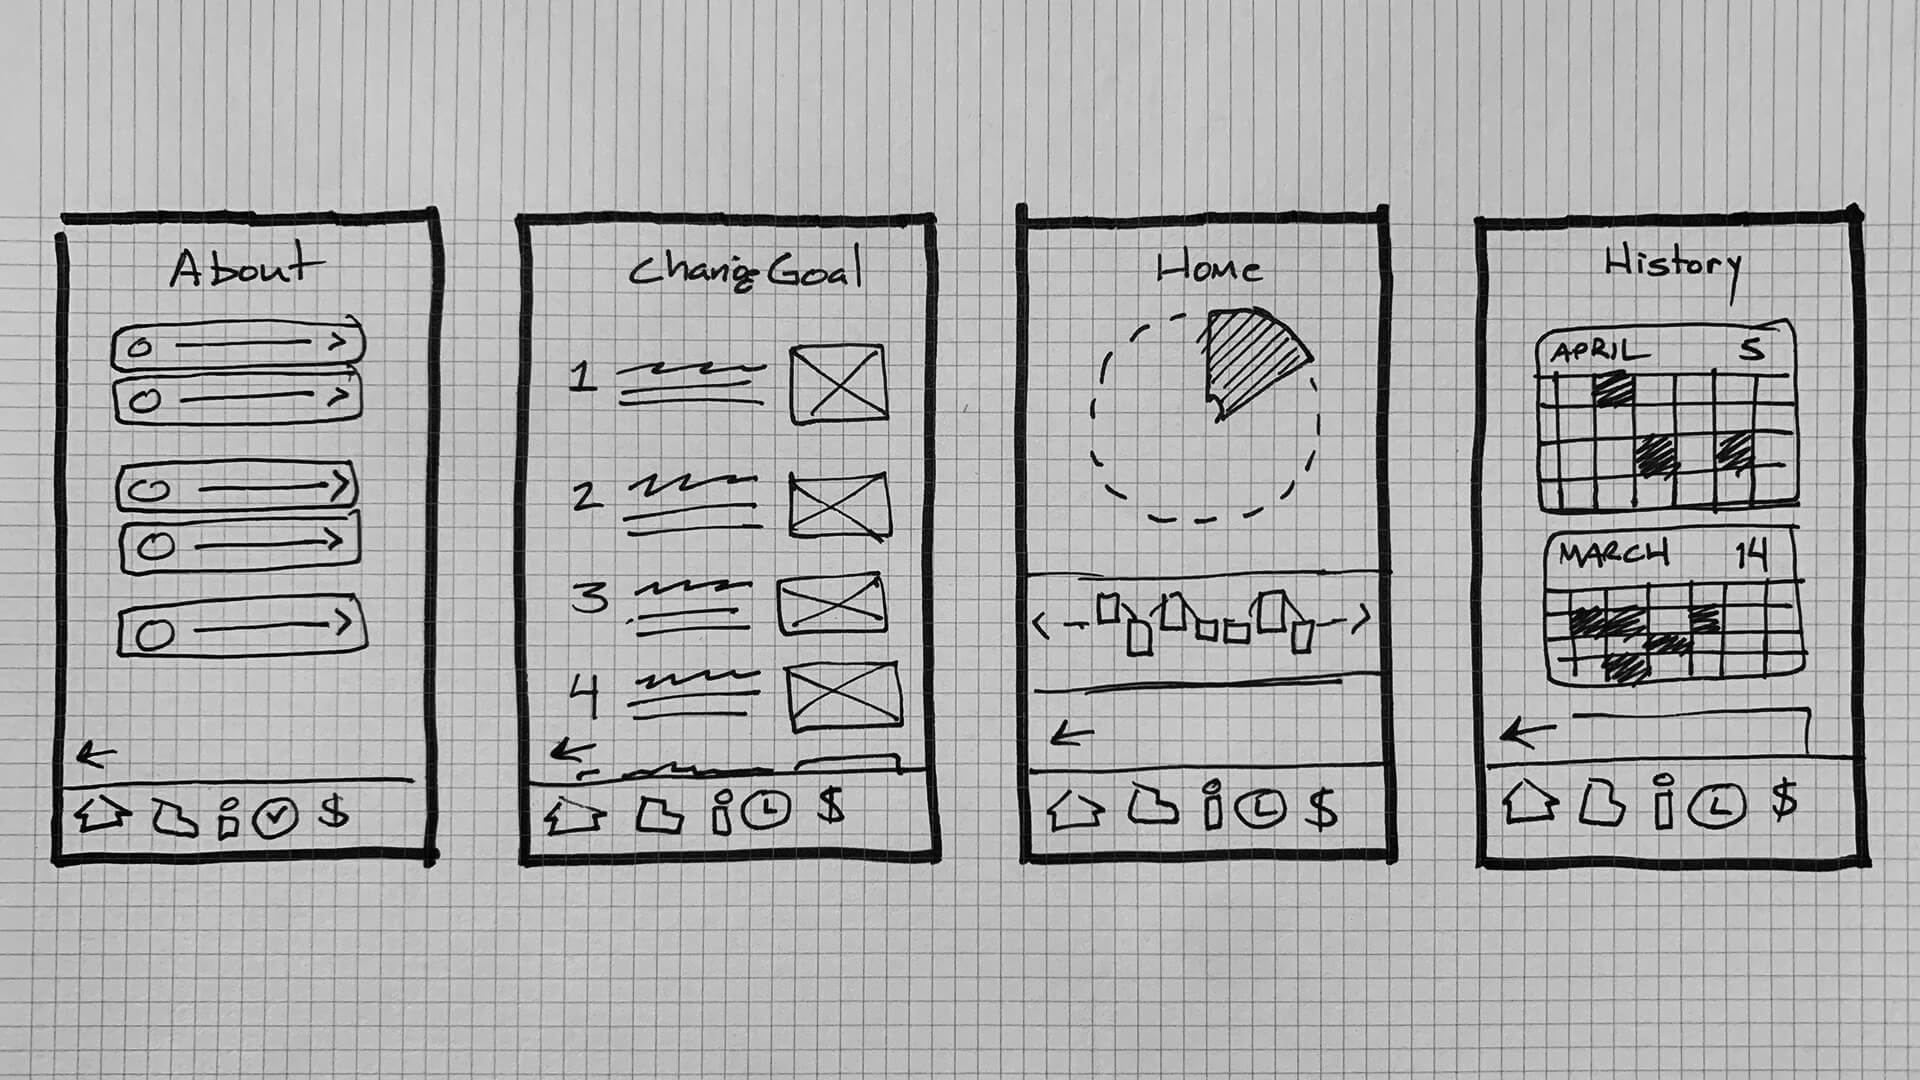 About
Change Goal
1
2
3
4
$
$
Home
$
History
APRIL 5
MARCH 14
$